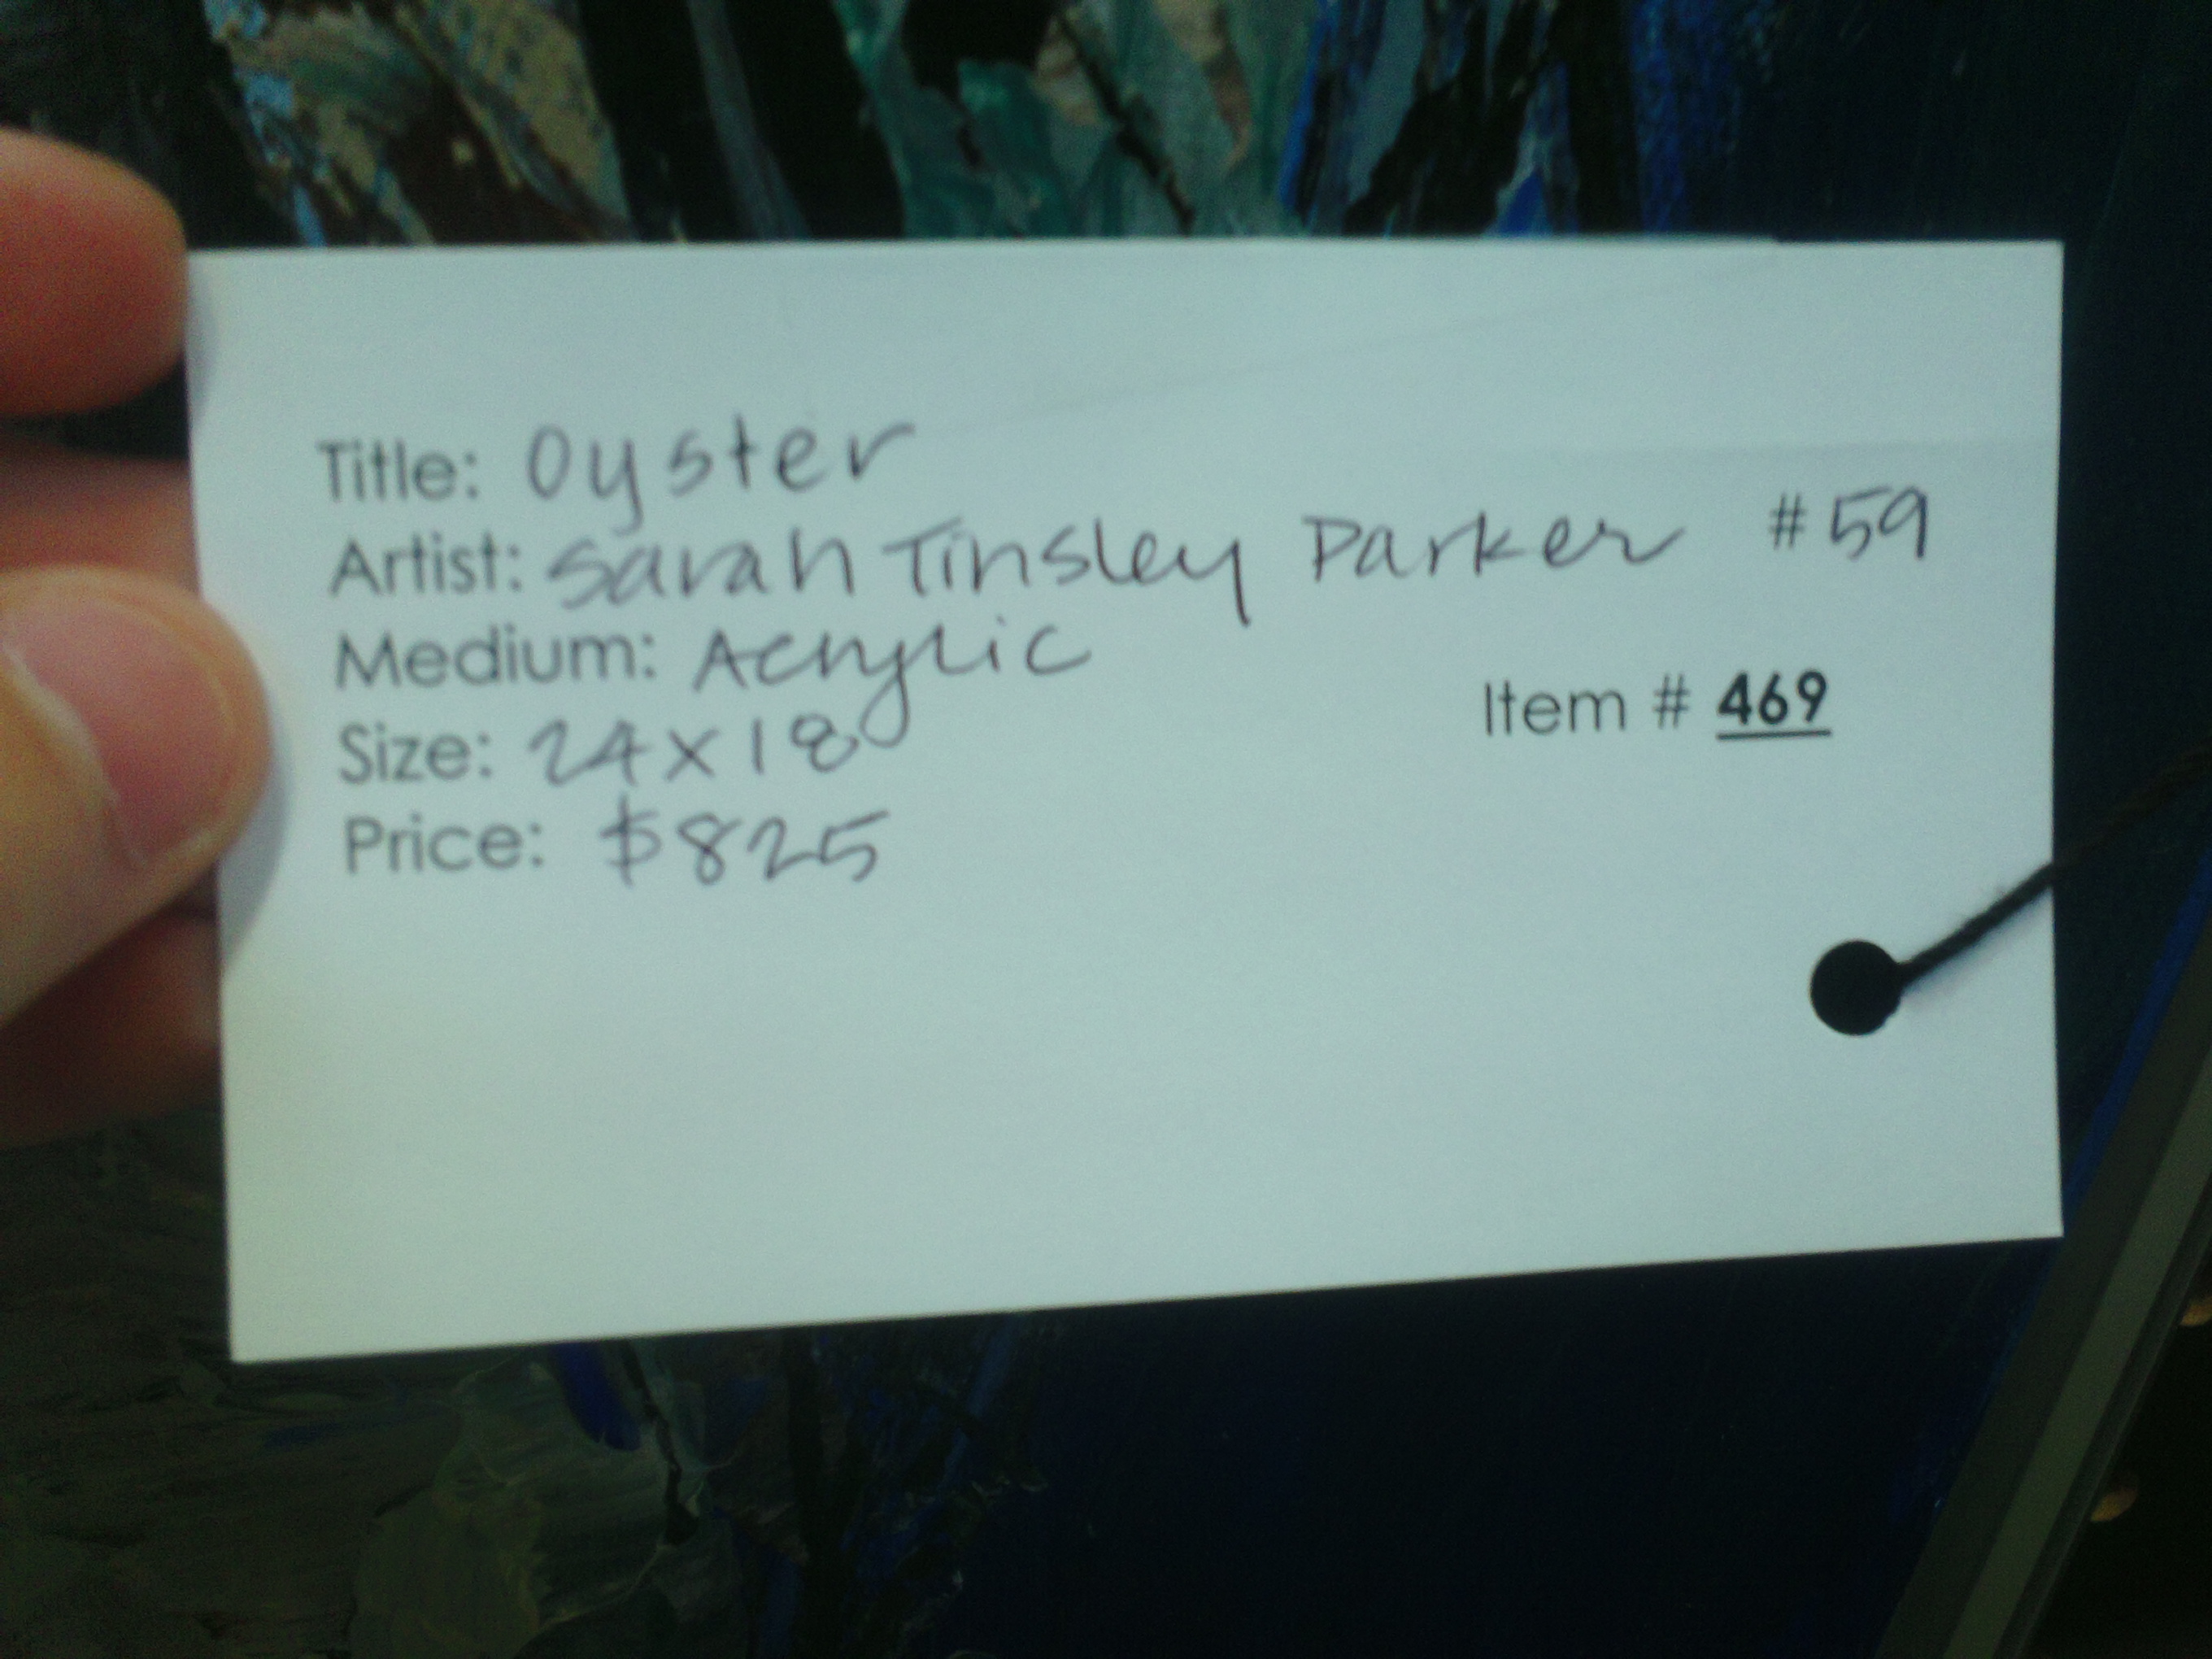 Title: Oyster
Artist: Sarah Tinsley Parker #59
Medium: Acrylic
Item # 469
Size: 24x18
Price: $825